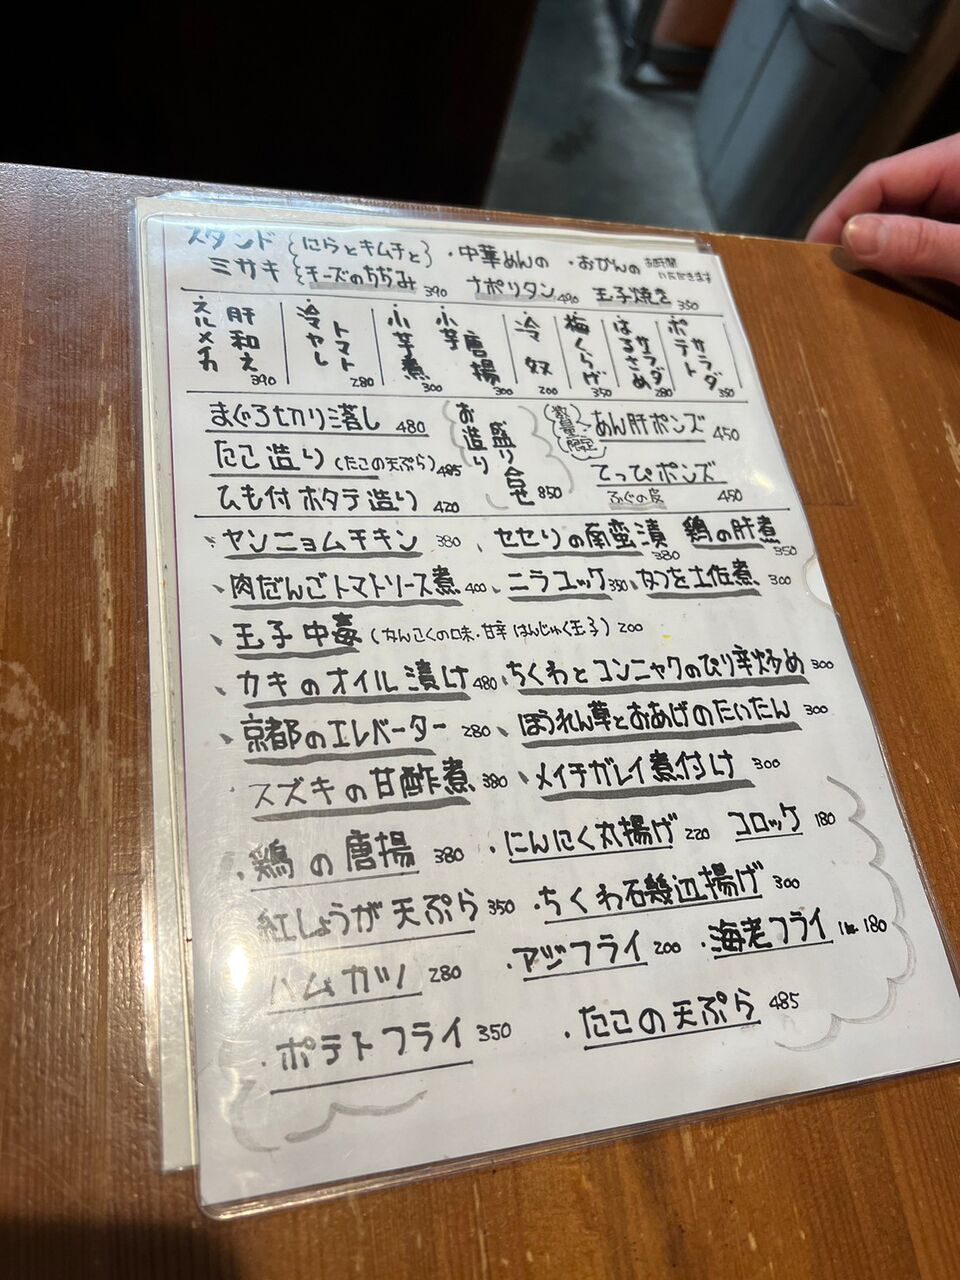 スタンド にらとキムチと ・中華めんの ・おびんの お時間
ミサキ チーズのちぢみ 390 ナポリタン 490 玉子焼き 350 いただきます
・スルメイカ 肝和え 390
・冷やし トマト 280
・小芋煮 300
・小芋 唐揚 300
・冷奴 200
梅くらげ 350
はるさめ サラダ 280
ポテト サラダ 350
まぐろ切り落し 480
たこ造り(たこの天ぷら) 485
ひも付ホタテ造り 420
お造り 盛り合せ 850
数量限定 あん肝ポンズ 450
てっぴポンズ 450
ふぐの皮
、ヤンニョムチキン 380 、セセリの南蛮漬 380 鶏の肝煮 350
、肉だんごトマトソース煮 400 、ニラユッケ 350 、なつを土佐煮 300
、玉子中毒 (かんこくの味・甘辛 はんじゅく玉子) 200
、カキのオイル漬け 480 、ちくわとコンニャクのぴり辛炒め 300
、京都のエレベーター 280 、ほうれん草とおあげのたいたん 300
スズキの甘酢煮 380 、メイチガレイ煮付け 300
・鶏の唐揚 380 ・にんにく丸揚げ 220 コロッケ 180
紅しょうが天ぷら 350 ・ちくわ石幾辺揚げ 300
ハムカツ 280 ・アジフライ 200 ・海老フライ 1ヶ 180
・ポテトフライ 350 ・たこの天ぷら 485